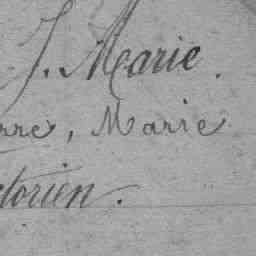 J. Marie.
rre, Marie
ctorien.